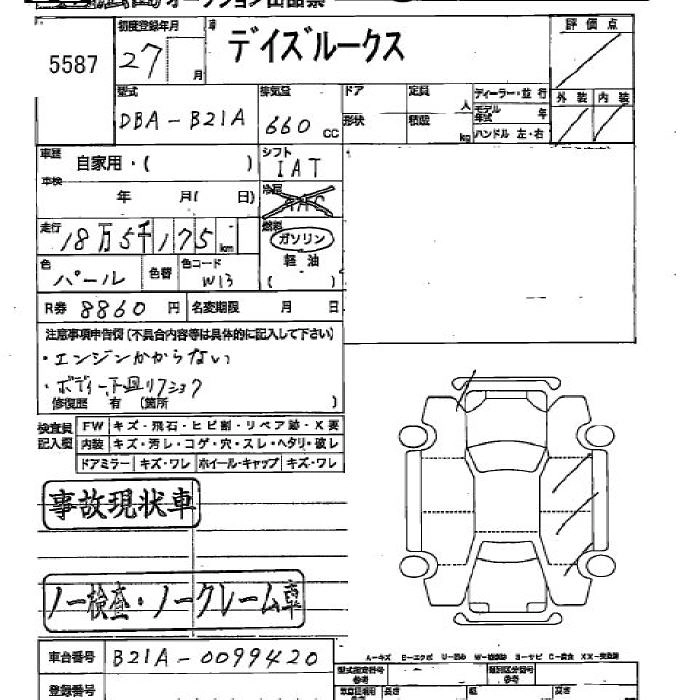 オークション出品票
5587
初度登録年月
27 月
車
デイズルークス
評価点
型式
DBA-B21A
排気量
660 cc
ドア
形状
定員 人
積載 kg
ディーラー・並行
モデル年式 年
ハンドル 左・右
外装 内装
車歴 自家用・( )
車検 年 月( 日)
シフト
IAT
冷房
燃料
ガソリン
軽油
( )
走行
18万5千175 km
色
パール
色替
色コード
W13
R券 8860円 名変期限 月 日
注意事項申告欄(不具合内容等は具体的に記入して下さい)
・エンジンかからない
・ボディー下廻りフショク
修復歴 有 (箇所 )
検査員記入欄
FW キズ・飛石・ヒビ割・リペア跡・X要
内装 キズ・汚レ・コゲ・穴・スレ・ヘタリ・破レ
ドアミラー キズ・ワレ ホイール・キャップ キズ・ワレ
事故現状車
ノー検査・ノークレーム車
車台番号 B21A-0099420
登録番号
型式指定番号
参考
類別区分番号
参考
長さ